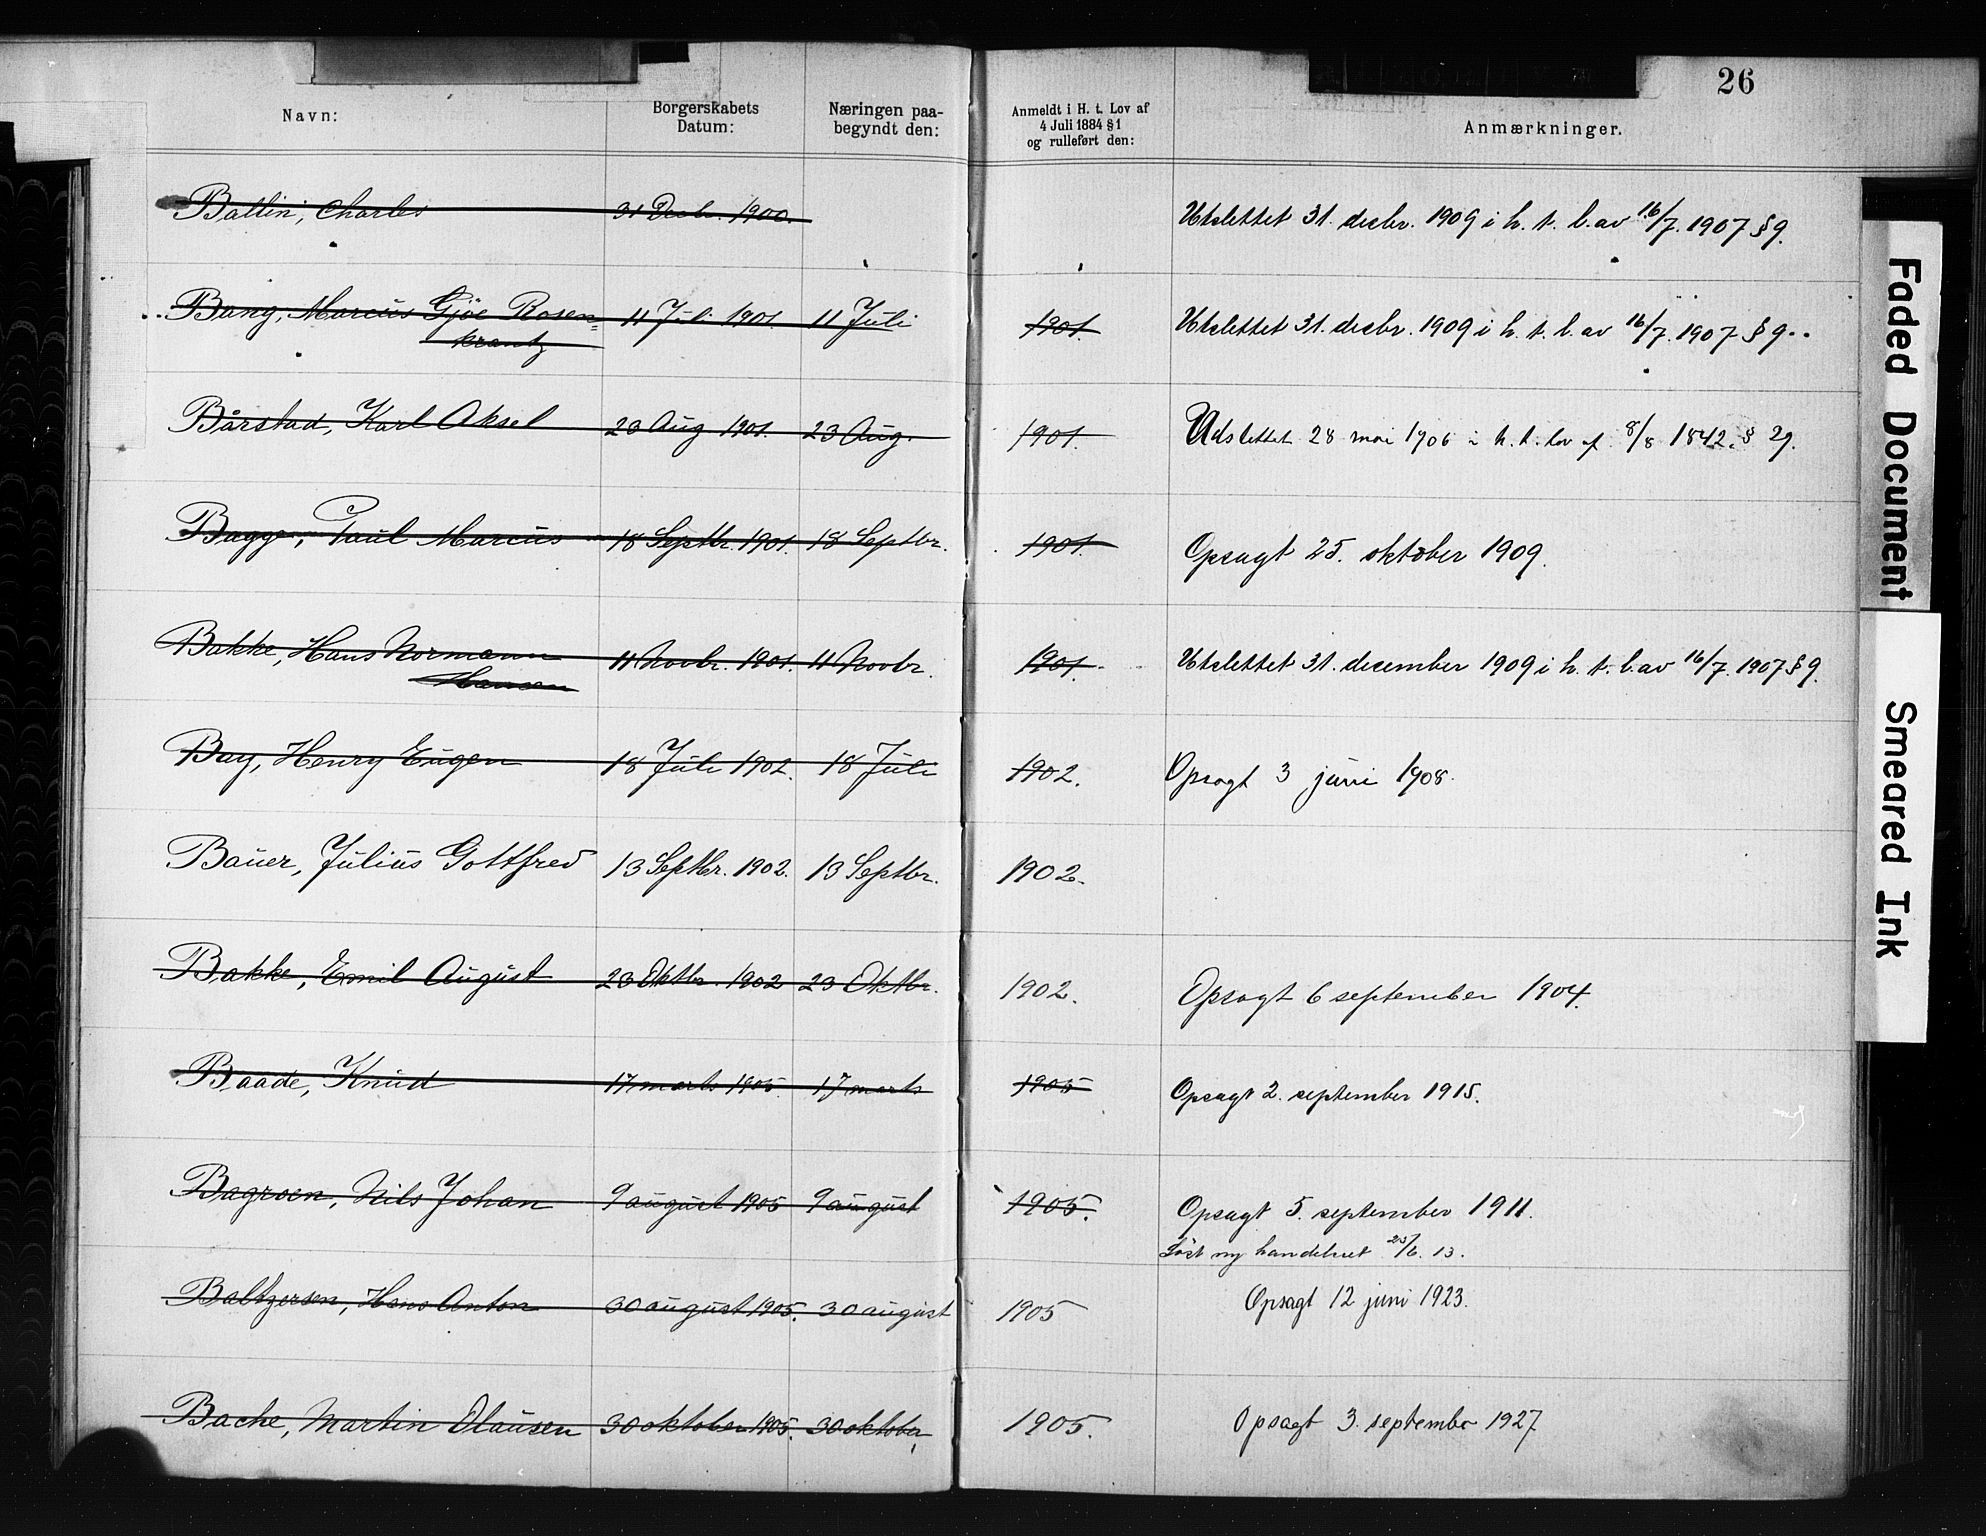 26
Navn:
Borgerskabets Datum:
Næringen paabegyndt den:
Anmeldt i H. t. Lov af 4 Juli 1884 § 1 og rulleført den:
Anmærkninger.
Ballin, Charles 31 Decbr. 1900. Utslettet 31. decbr. 1909 i h. t. l. av 16/7. 1907 § 9.
Bang, Marcus Gjöe Rosen= 11 Juli 1901. 11 Juli 1901. Utslettet 31. decbr. 1909 i h. t. l. av 16/7. 1907 § 9.
krantz
Bårstad, Karl Aksel 23 Aug. 1901. 23 Aug. 1901. Udslettet 28 mai 1906 i h. t. lov af 8/8 1842. § 29.
Bagge, Paul Marcus 18 Septbr. 1901. 18 Septbr. 1901. Opsagt 25. oktober 1909.
Bakke, Hans Normann 11 Novbr. 1901. 11 Novbr. 1901. Utslettet 31. december 1909 i h. t. l. av 16/7. 1907 § 9.
Hansen
Bay, Henry Eugen 18 Juli 1902. 18 Juli 1902. Opsagt 3 juni 1908.
Bauer, Julius Gottfred 13 Septbr. 1902. 13 Septbr. 1902.
Bakke, Emil August 23 Oktbr. 1902 23 Oktbr. 1902. Opsagt 6 september 1904.
Baade, Knud 17 marts 1905. 17 marts 1905 Opsagt 2. september 1915.
Bagroen, Nils Johan 9 august 1905 9 august 1905. Opsagt 5. september 1911.
Löst ny handelsret 25/6. 13.
Baltzersen, Hans Anton 30 august 1905. 30 august 1905 Opsagt 12 juni 1923.
Bache, Martin Olausen 30 oktober 1905. 30 oktober 1905. Opsagt 3. septembr 1927
Faded Document
Smeared Ink